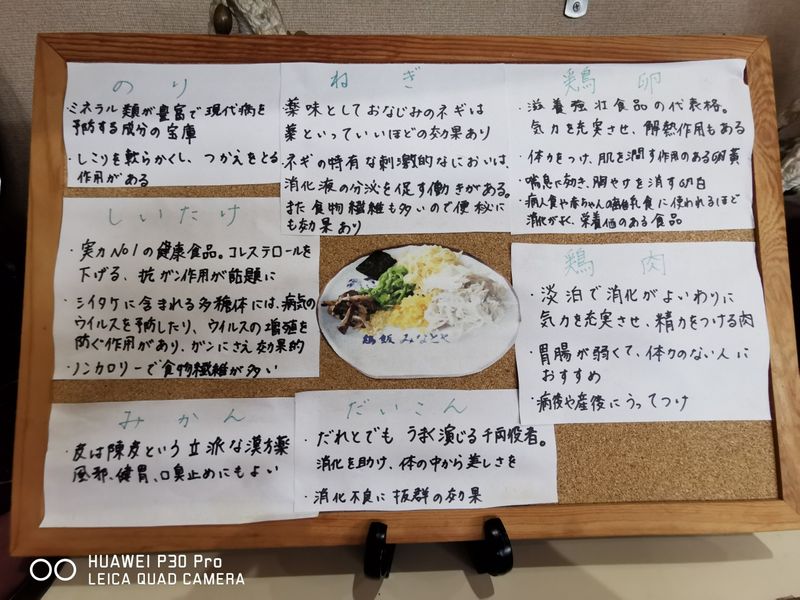 のり
・ミネラル類が豊富で現代病を
予防する成分の宝庫
・しこりを軟らかくし、つかえをとる
作用がある
ねぎ
薬味としておなじみのネギは
薬といっていいほどの効果あり
・ネギの特有な刺激的なにおいは、
消化液の分泌を促す働きがある。
また食物繊維も多いので便秘に
も効果あり
鶏卵
・滋養強壮食品の代表格。
気力を充実させ、解熱作用もある
・体力をつけ、肌を潤す作用のある卵黄
・喘息に効き、胸やけを消す卵白
・病人食や赤ちゃんの離乳食に使われるほど
消化がよく、栄養価のある食品
しいたけ
・実力No1の健康食品。コレステロールを
下げる、抗ガン作用が話題に
・シイタケに含まれる多糖体には、病気の
ウイルスを予防したり、ウイルスの増殖を
防ぐ作用があり、ガンにさえ効果的
・ノンカロリーで食物繊維が多い
鶏肉
・淡泊で消化がよいわりに
気力を充実させ、精力をつける肉
・胃腸が弱くて、体力のない人に
おすすめ
・病後や産後にうってつけ
鶏飯 みなとや
みかん
・皮は陳皮という立派な漢方薬
風邪、健胃、口臭止めにもよい
だいこん
・だれとでもうまく演じる千両役者。
消化を助け、体の中から美しさを
・消化不良に抜群の効果
HUAWEI P30 Pro
LEICA QUAD CAMERA